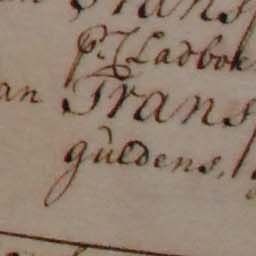 Trans
P. J. Ladboe
an Trans
guldens,